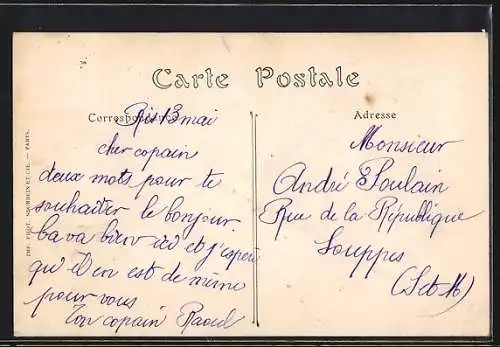 Carte Postale
Correspondance
Ris 13 mai
cher copain
deux mots pour te
souhaiter le bonjour.
ba va bien ici et j'espère
qu'il en est de même
pour vous
Ton copain Raoul
Adresse
Monsieur
André Poulain
Rue de la République
Souppes
(S et M)